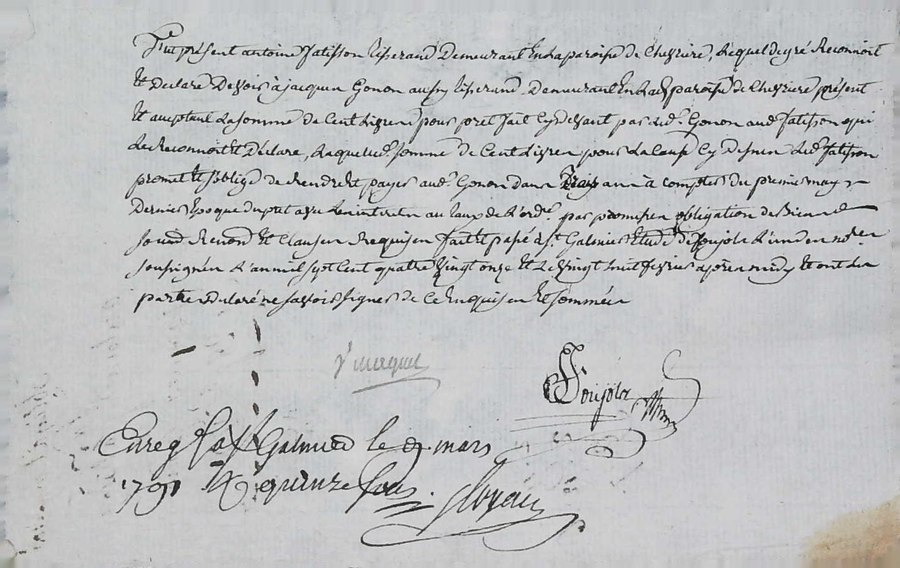 Fut présent antoine fatisson tisserand Demeurant En la paroisse de Chevriere, Lequel de gré Reconnoit
Et déclare Devoir à jacques Gonon aussy tisserand Demeurant En lad. paroisse de Chevriere présent
Et acceptant La somme de Cent Livres pour pret fait Cy devant par led. Gonon aud. fatisson qui
Le Reconnoit Et Déclare, Laquelle d. somme de Cent Livres pour La Cause Cy dessus Led. fatisson
promet Et s'oblige de Rendre Et payer aud. Gonon dans trois ans à compter du premier may
Dernier Epoque du pret avec Les interets au taux de L'ord.e par promesses obligation de Biens
soumd. Renond. Et Clauses Requises fait Et passé à St. Galmier Etude de Poujols L'un des no.res
soussignés L'an mil sept Cent quatre vingt onze Et Le vingt huit fevrier après midy Et ont Les
parties déclaré ne savoir signer de Ce Enquises Et sommées
Poujols
Enreg. à St Galmier le mars
1791 R. quinze sous.